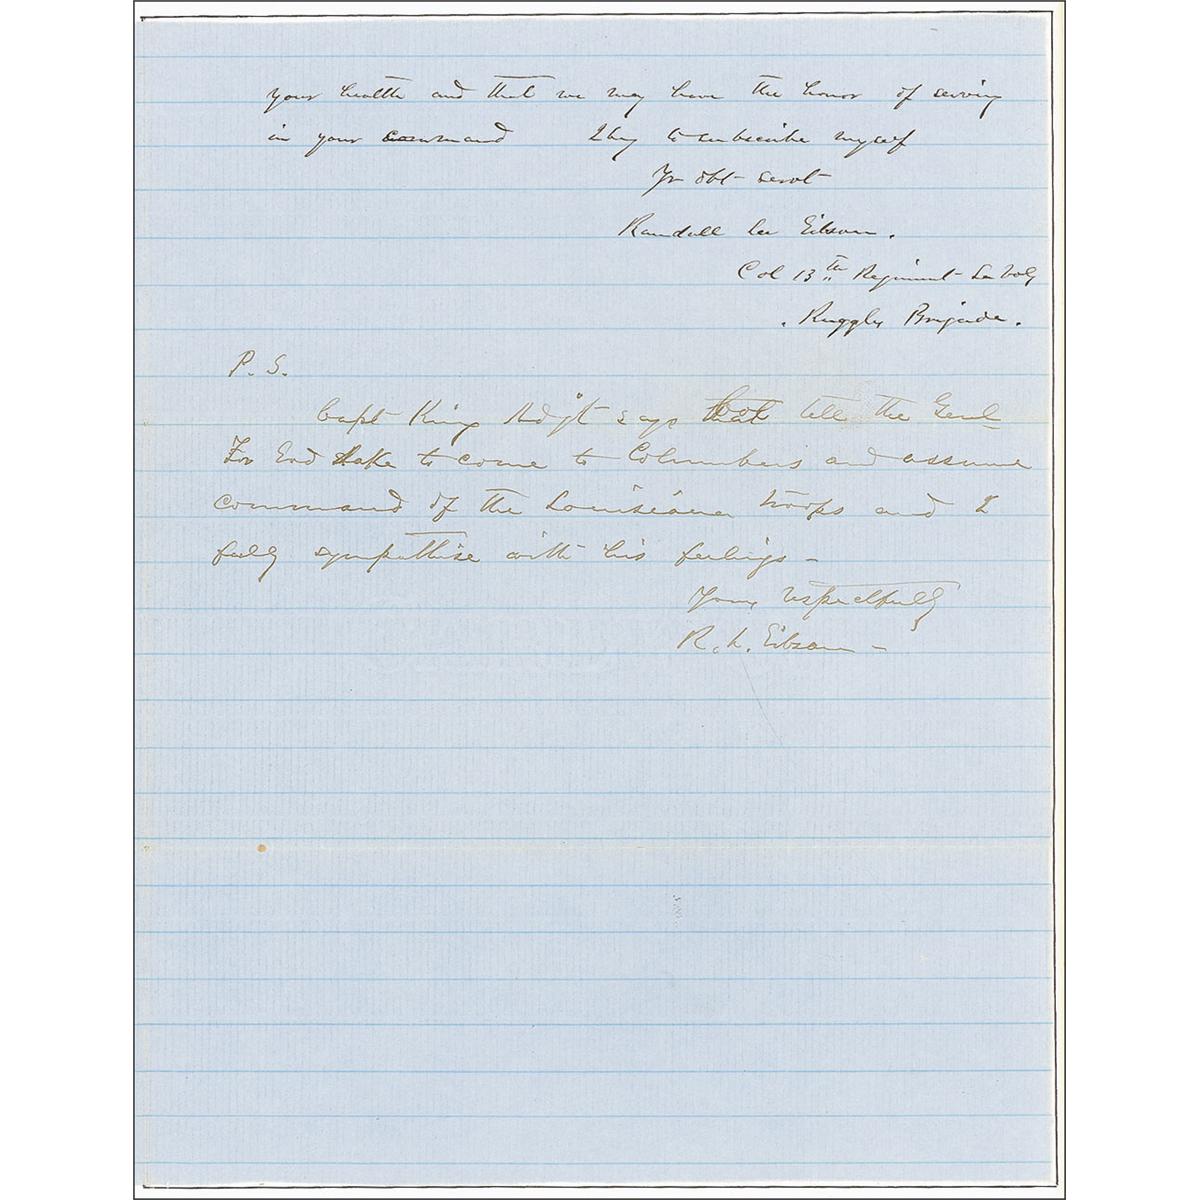 your health and that we may have the honor of serving
in your command I beg to subscribe myself
Yr obt servt
Randall Lee Gibson.
Col 13th Regiment La Vols
. Ruggles Brigade.
P. S.
Capt King Adjt says tell the Genl
For God sake to come to Columbus and assume
command of the Louisiana troops and I
fully sympathise with his feelings –
Yours respectfully
R. L. Gibson –